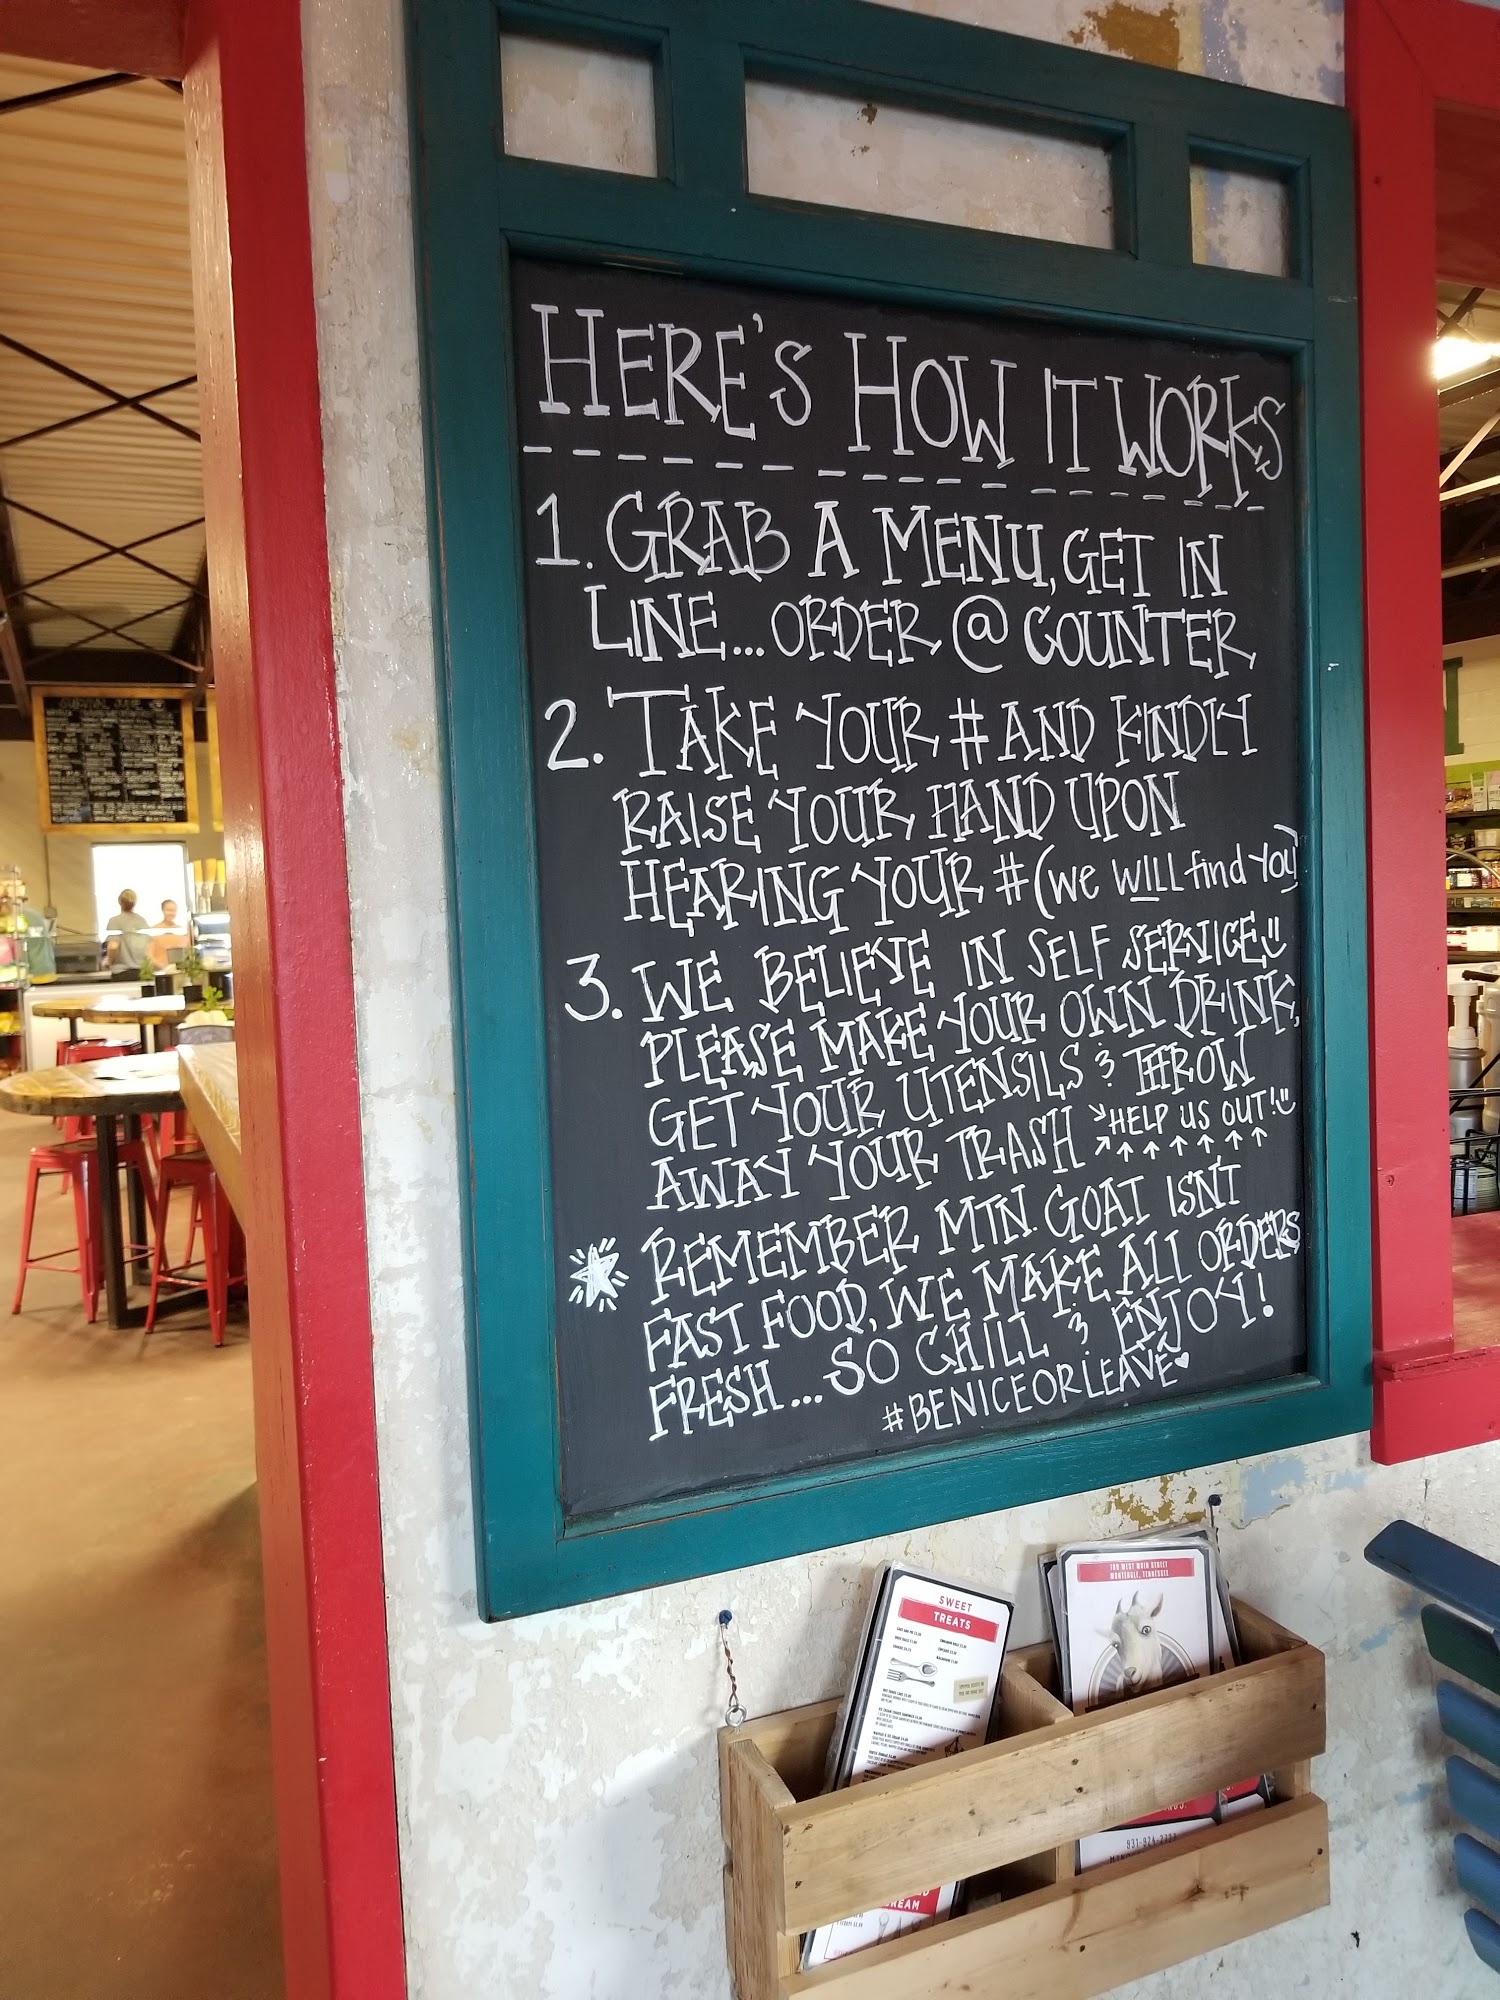 HERE'S HOW IT WORKS
1. GRAB A MENU, GET IN
LINE... ORDER @ COUNTER
2. TAKE YOUR # AND KINDLY
RAISE YOUR HAND UPON
HEARING YOUR # (we WILL find you)
3. WE BELIEVE IN SELF SERVICE
PLEASE MAKE YOUR OWN DRINK,
GET YOUR UTENSILS & THROW
AWAY YOUR TRASH HELP US OUT!
REMEMBER MTN. GOAT ISN'T
FAST FOOD, WE MAKE ALL ORDERS
FRESH... SO CHILL & ENJOY!
#BENICEORLEAVE
SWEET
TREATS
109 WEST MAIN STREET
MONTEAGLE, TENNESSEE
931-924-2727